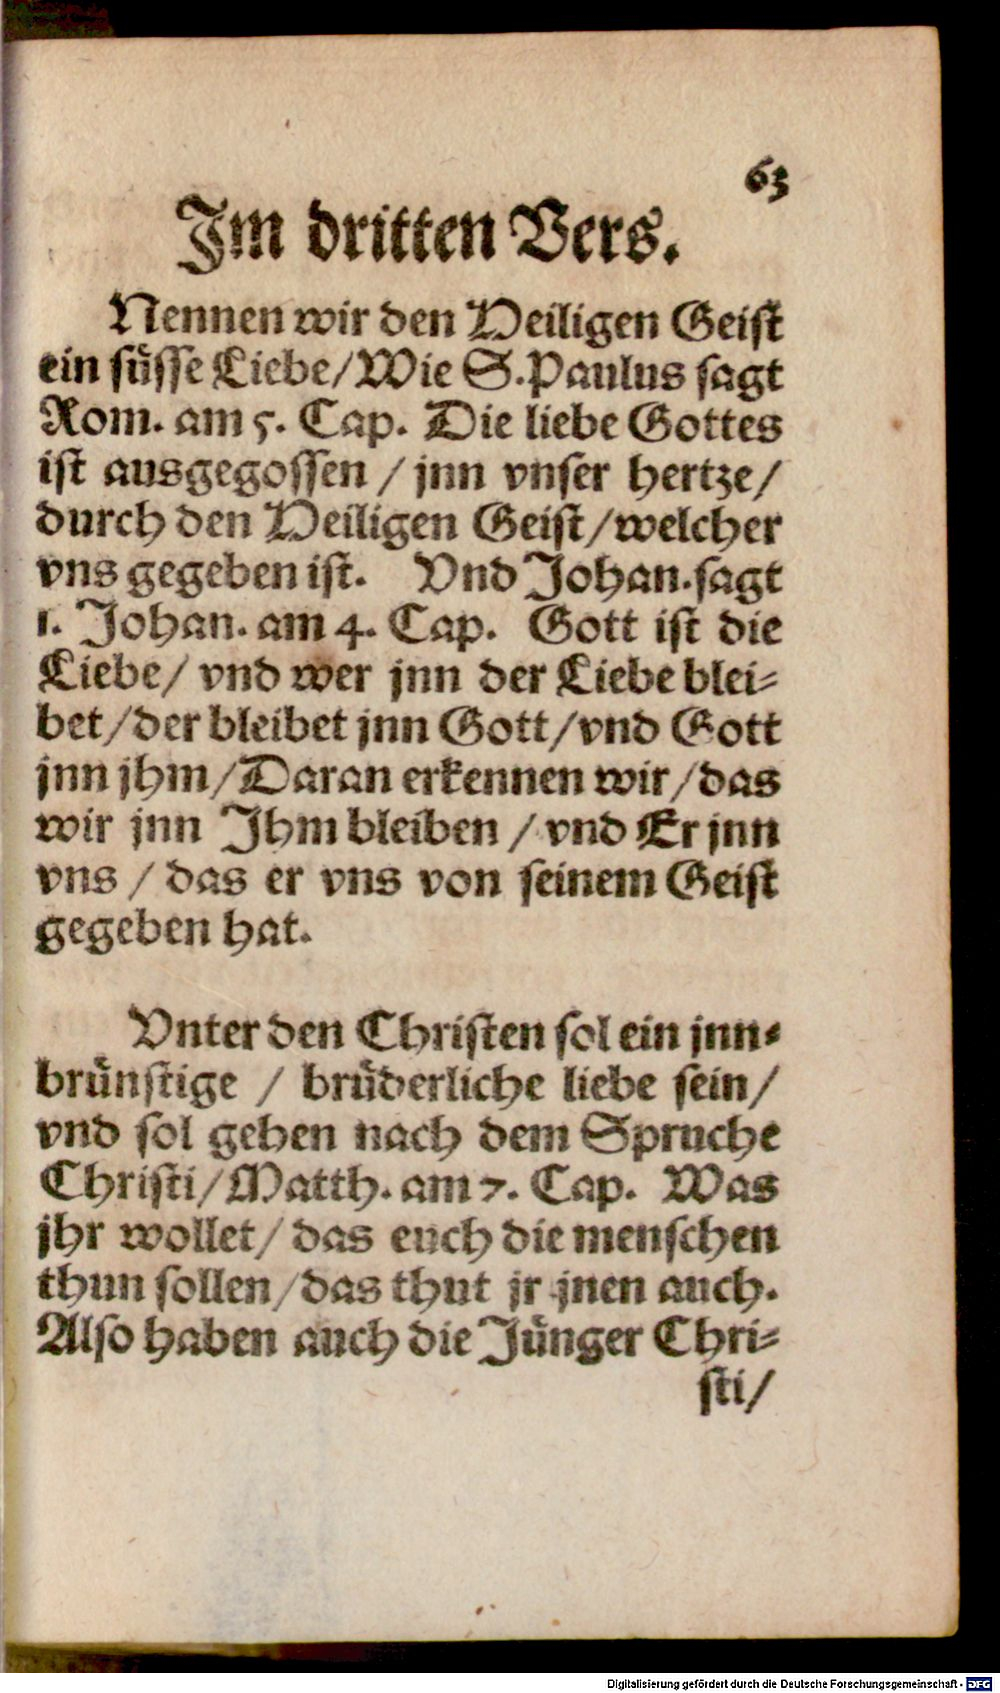 63
Im dritten Vers.
Nennen wir den Heiligen Geist
ein süsse Liebe/Wie S.Paulus sagt
Rom. am 5. Cap. Die liebe Gottes
ist ausgegossen / jnn vnser hertze/
durch den Heiligen Geist/welcher
vns gegeben ist. Vnd Johan.sagt
1. Johan. am 4. Cap. Gott ist die
Liebe/ vnd wer jnn der Liebe blei-
bet/der bleibet jnn Gott/vnd Gott
jnn jhm/Daran erkennen wir/das
wir jnn Jhm bleiben / vnd Er jnn
vns / das er vns von seinem Geist
gegeben hat.
Vnter den Christen sol ein jnn-
brünstige / brüderliche liebe sein/
vnd sol gehen nach dem Spruche
Christi/Matth. am 7. Cap. Was
jhr wollet/ das euch die menschen
thun sollen/das thut jr jnen auch.
Also haben auch die Jünger Chri-
sti/
Digitalisierung gefördert durch die Deutsche Forschungsgemeinschaft - DFG